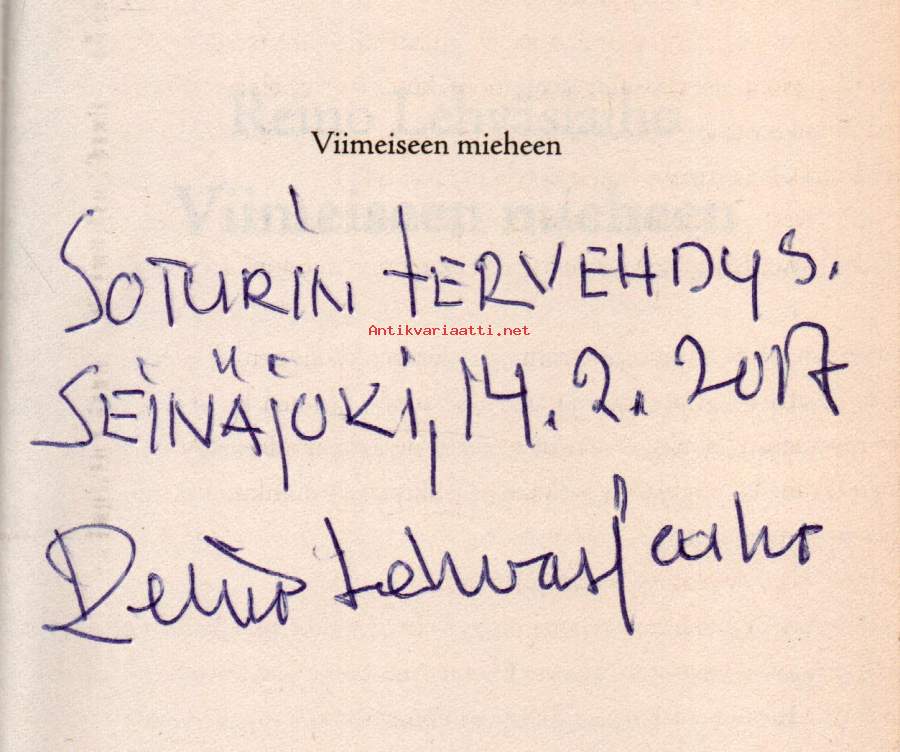 Viimeiseen mieheen
SOTURIN tERVEHDYS.
Antikvariaatti.net
SEINÄJOKI, 14.2.2017
Reino Lehväslaiho